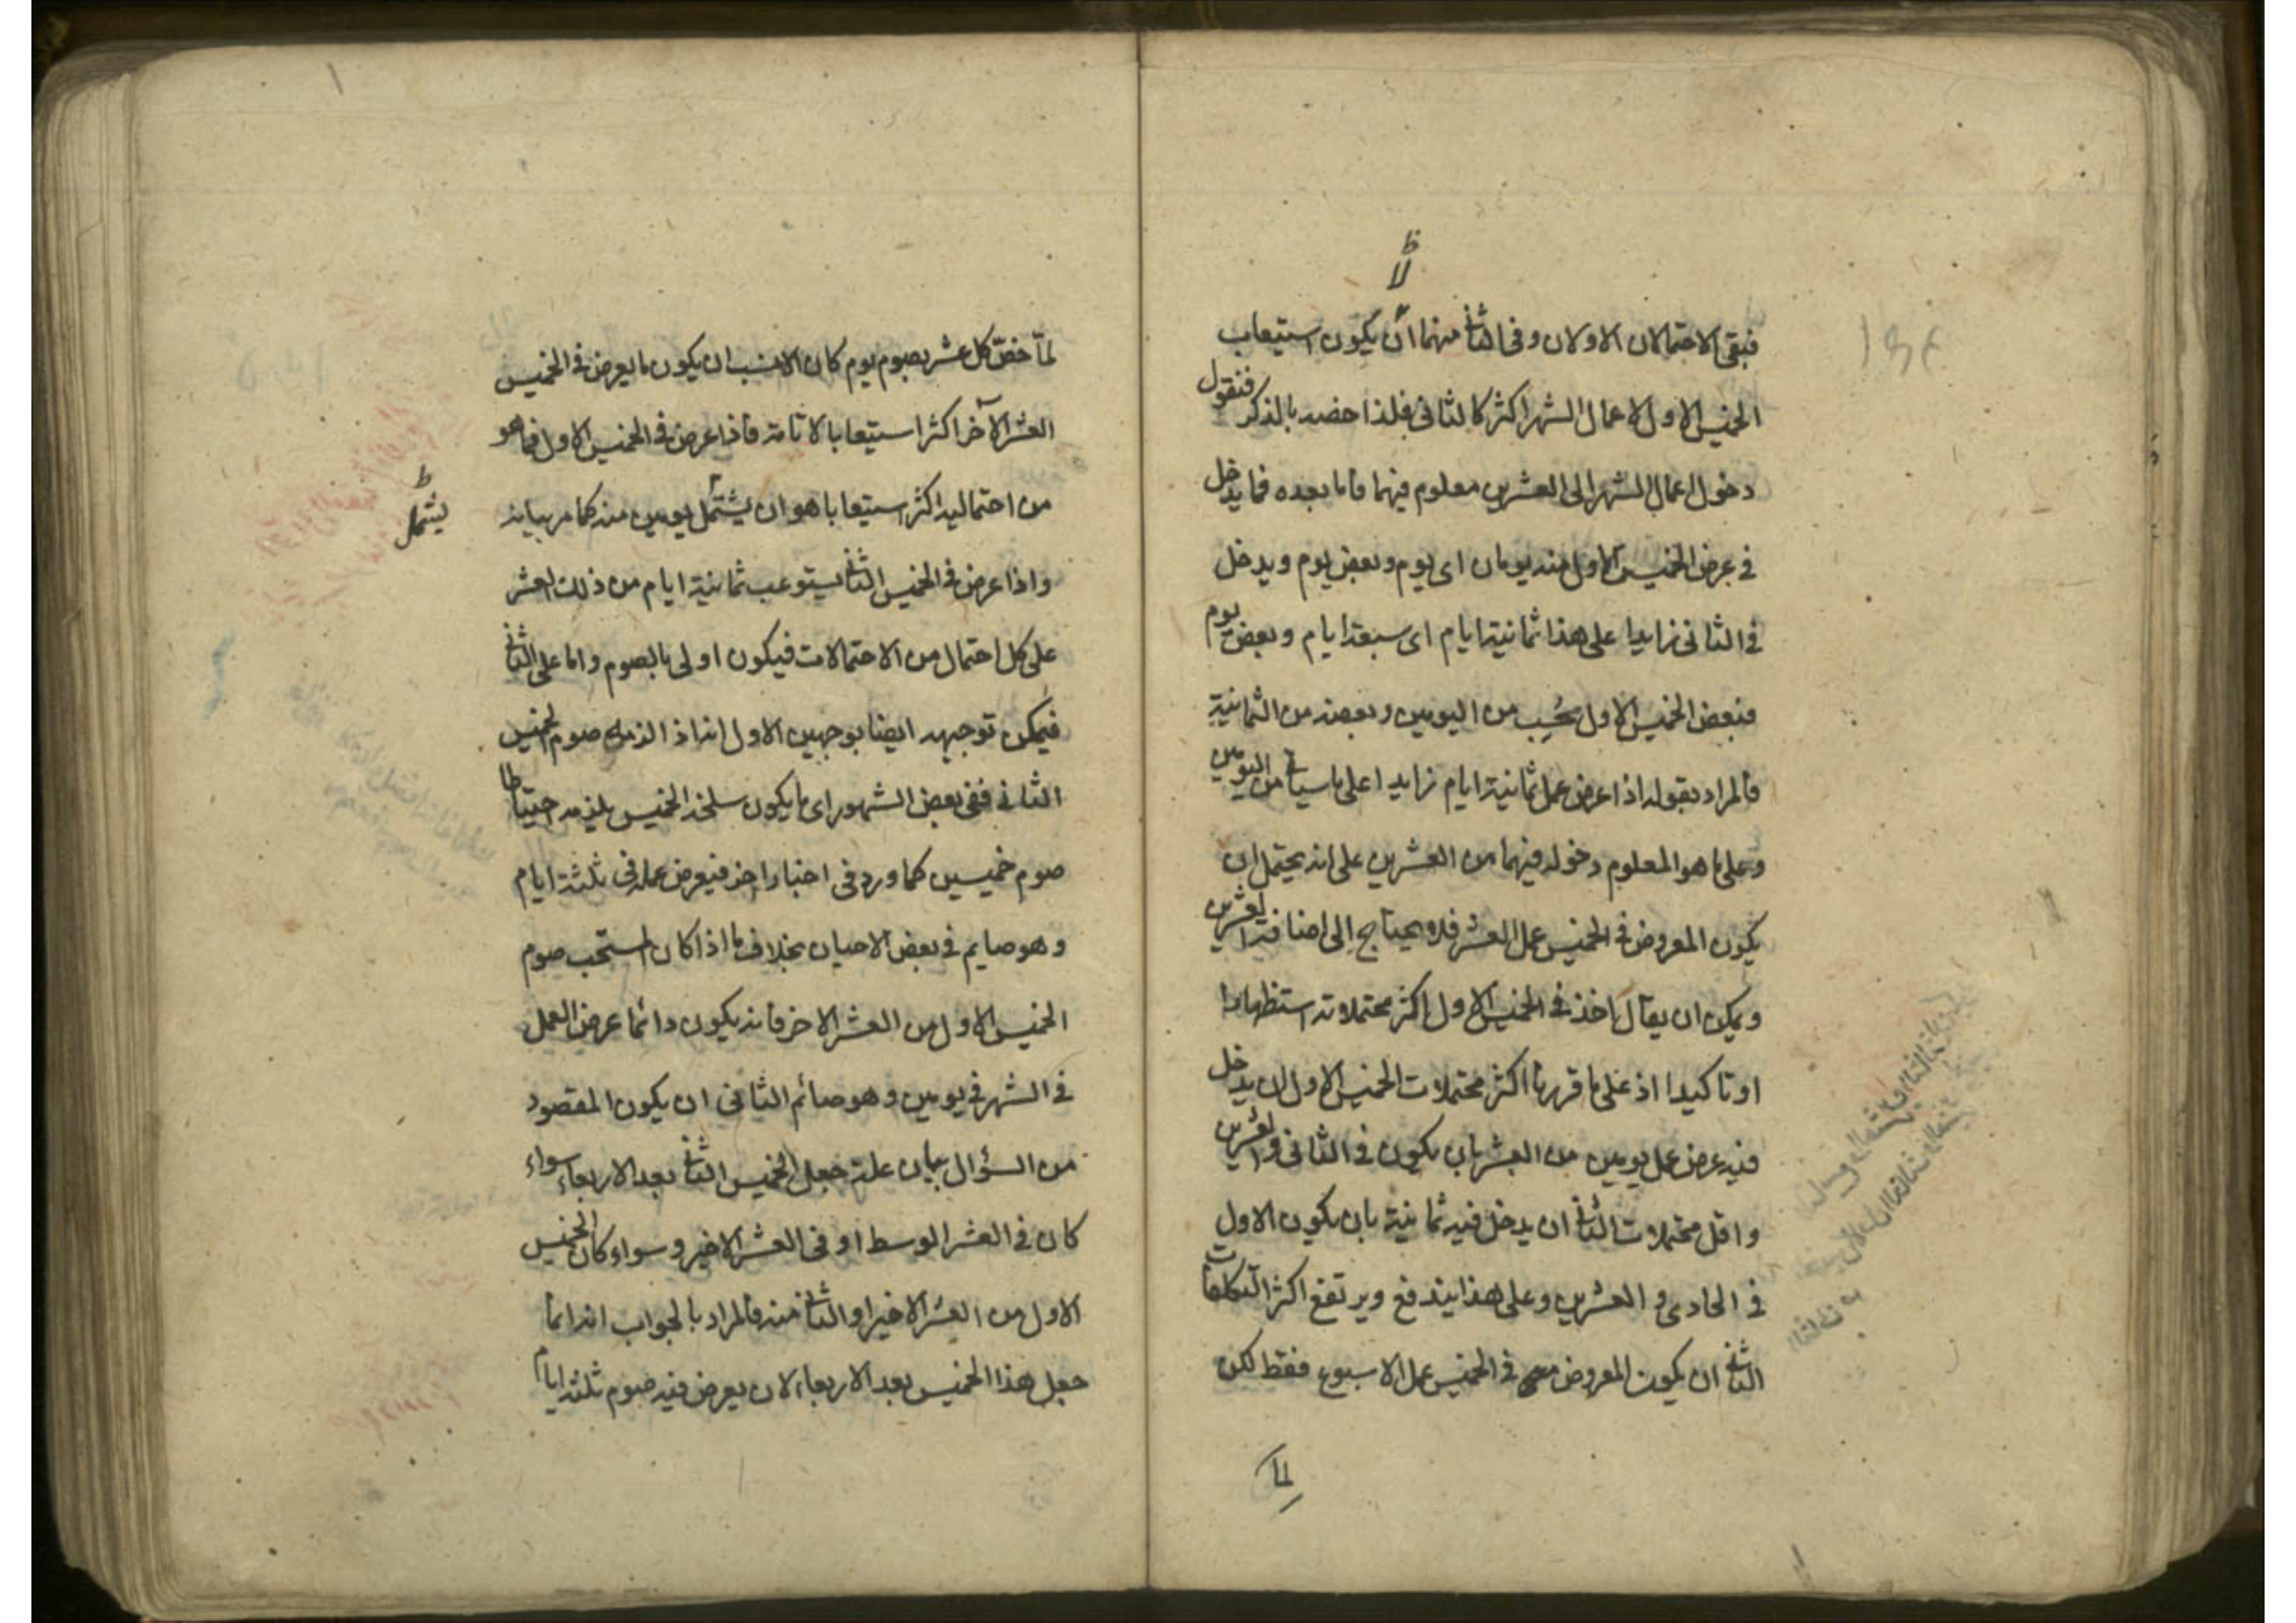 ظ
لا
فبقي الاحتمالان الاولان وفي الثاني منهما ان يكون استيعاب
الخميس الاول لاعمال الشهر اكثر كالثاني فلذا خصه بالذكر فنقول
دخول اعمال الشهر الى العشرين معلوم فيهما واما بعده فما يدخل
في عرض الخميس الاول منه يومان اى يوم وبعض يوم ويدخل
في الثاني زايدا على هذا ثمانية ايام اى سبعة ايام وبعض يوم
فبعض الخميس الاول حُسِب من اليومين وبعضه من الثمانية
فالمراد بقوله اذا عرض عمل ثمانية ايام زايدا على ما سياتى من اليومين
وعلى ما هو المعلوم دخوله فيهما من العشرين على انه يحتمل ان
يكون المعروض في الخميس عمل العشر فلا يحتاج الى اضافة العشرين
ويمكن ان يقال اخذ في الخميس الاول اكثر محتملاته استظهارا
او تاكيدا اذ على ما قررنا اكثر محتملات الخميس الاول ان يدخل
فيه عرض عمل يومين من العشر بان يكون في الثاني والعشرين
واقل محتملات الثاني ان يدخل فيه ثمانية بان يكون الاول
في الحادى و العشرين وعلى هذا يندفع ويرتفع اكثر التكلفات
الثاني ان يكون المعروض في الخميس عمل الاسبوع فقط لكن
لما
لمّا خصّ كل عشر بصوم يوم كان الانسب ان يكون ما يعرض في الخميس
العشر الآخر اكثر استيعابا لاتامه فاذا عرض في الخميس الاول فما هو
من احتماليه اكثر استيعابا هو ان يشتمل يومين منه كما مر بيانه
ليشمل ظ
واذا عرض في الخميس الثاني يستوعب ثمانية ايام من ذلك العشر
على كل احتمال من الاحتمالات فيكون اولى بالصوم واما على الثاني
فيمكن توجيهه ايضا بوجهين الاول انه اذا الزمه صوم الخميس
الثاني ففي بعض الشهور اى ما يكون سلخه الخميس يلزمه احتياطا
صوم خميسين كما ورد في اخبار اخر فيعرض عمله في ثلثة ايام
وهو صايم في بعض الاحيان بخلاف ما اذا كان المستحب صوم
الخميس الاول من العشر الاخر فانه يكون دائما عرض العمل
في الشهر في يومين وهو صائم الثاني ان يكون المقصود
من السؤال بيان علة جعل الخميس الثاني بعد الاربعاء سواء
كان في العشر الوسط او في العشر الاخير وسواء كان الخميس
الاول من العشر الاخير او الثاني منه فالمراد بالجواب انه انما
جعل هذا الخميس بعد الاربعاء لان يعرض فيه صوم ثلثة ايام